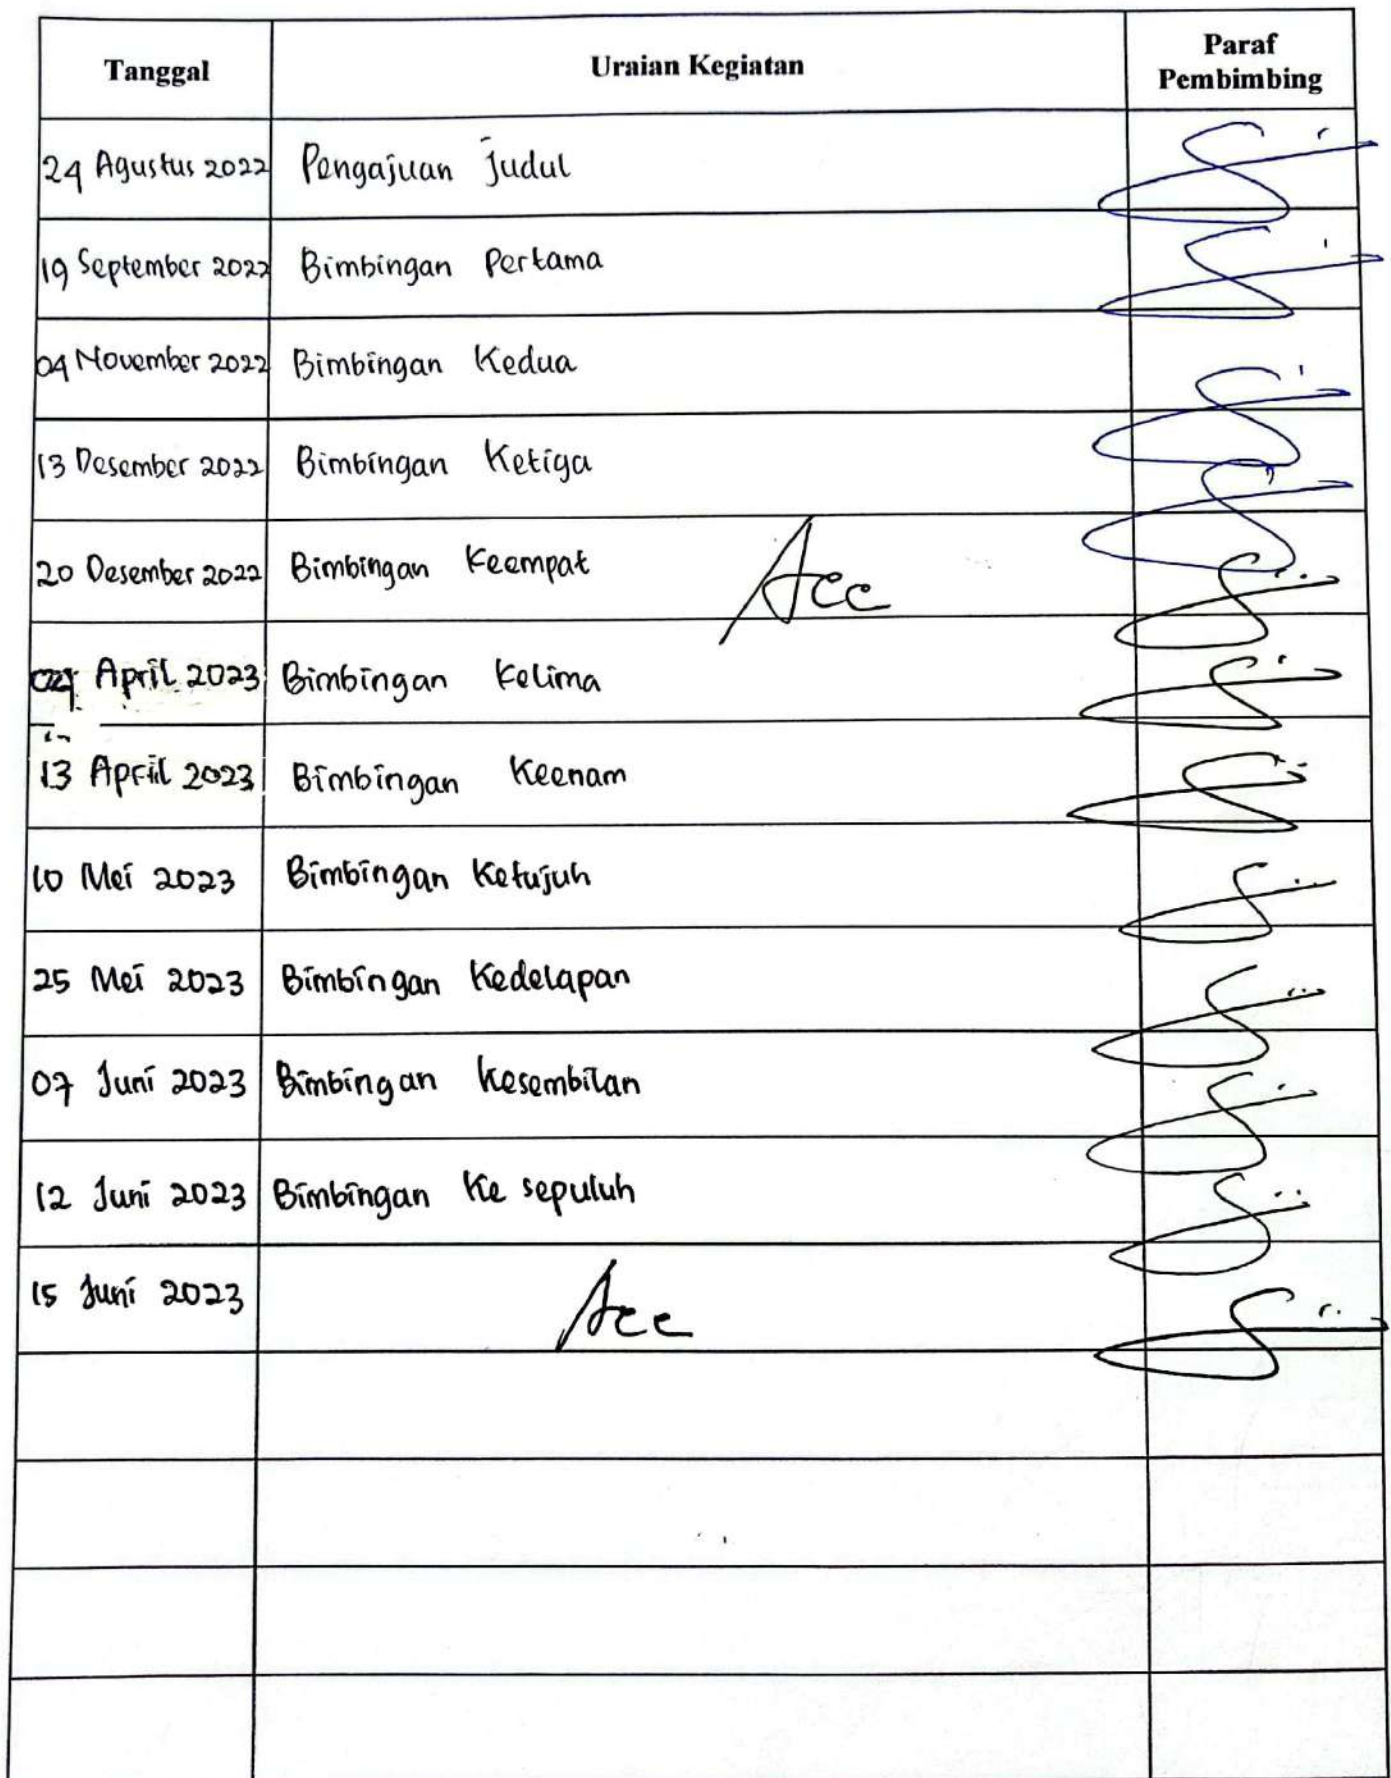 Tanggal Uraian Kegiatan Paraf Pembimbing
24 Agustus 2022 Pengajuan Judul
19 September 2022 Bimbingan Pertama
04 November 2022 Bimbingan Kedua
13 Desember 2022 Bimbingan Ketiga
20 Desember 2022 Bimbingan Keempat Acc
April 2023 Bimbingan Kelima
13 April 2023 Bimbingan Keenam
10 Mei 2023 Bimbingan Ketujuh
25 Mei 2023 Bimbingan Kedelapan
07 Juni 2023 Bimbingan Kesembilan
12 Juni 2023 Bimbingan Ke sepuluh
15 Juni 2023 Acc